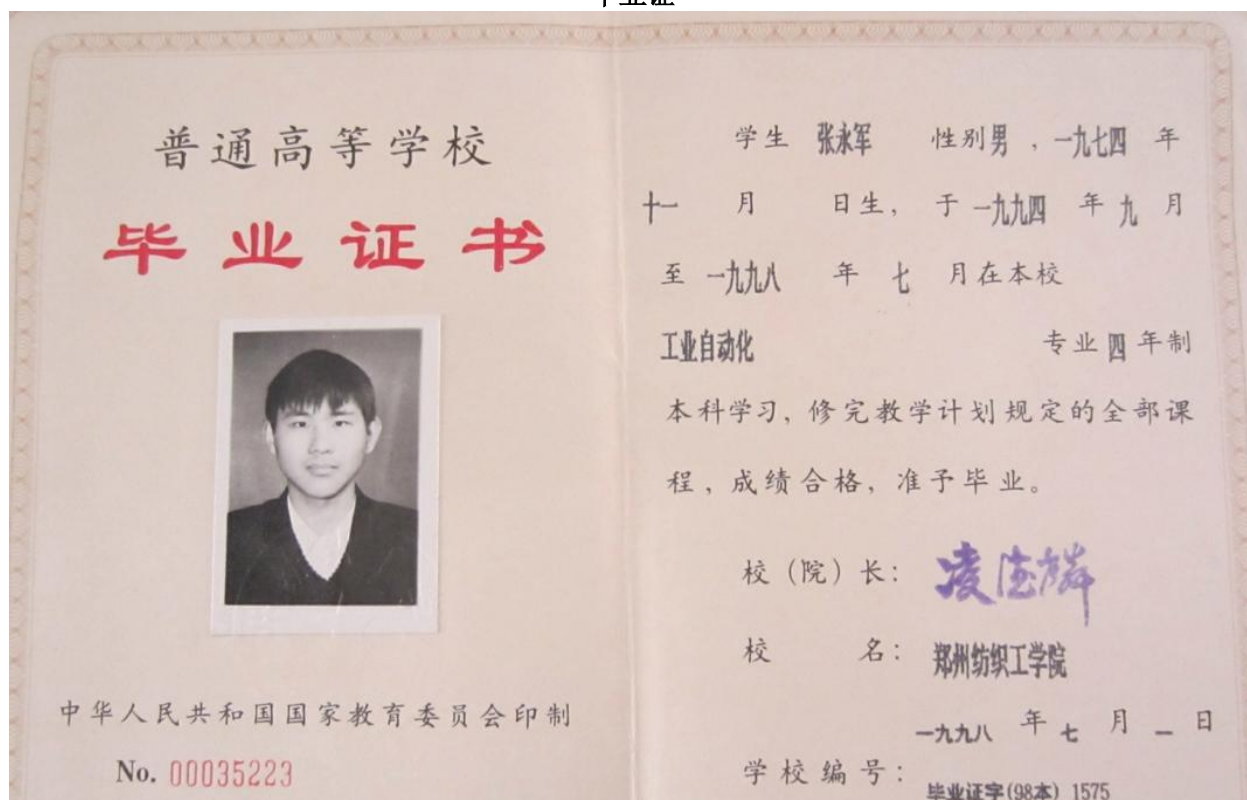 毕业证
普通高等学校
毕业证书
中华人民共和国国家教育委员会印制
No. 00035223
学生 张永军 性别男，一九七四 年
十一 月 日生，于 一九九四 年 九 月
至 一九九八 年 七 月在本校
工业自动化 专业 四 年制
本科学习，修完教学计划规定的全部课
程，成绩合格，准予毕业。
校（院）长：凌德麟
校 名：郑州纺织工学院
一九九八 年 七 月 一 日
学校编号：毕业证字(98本) 1575